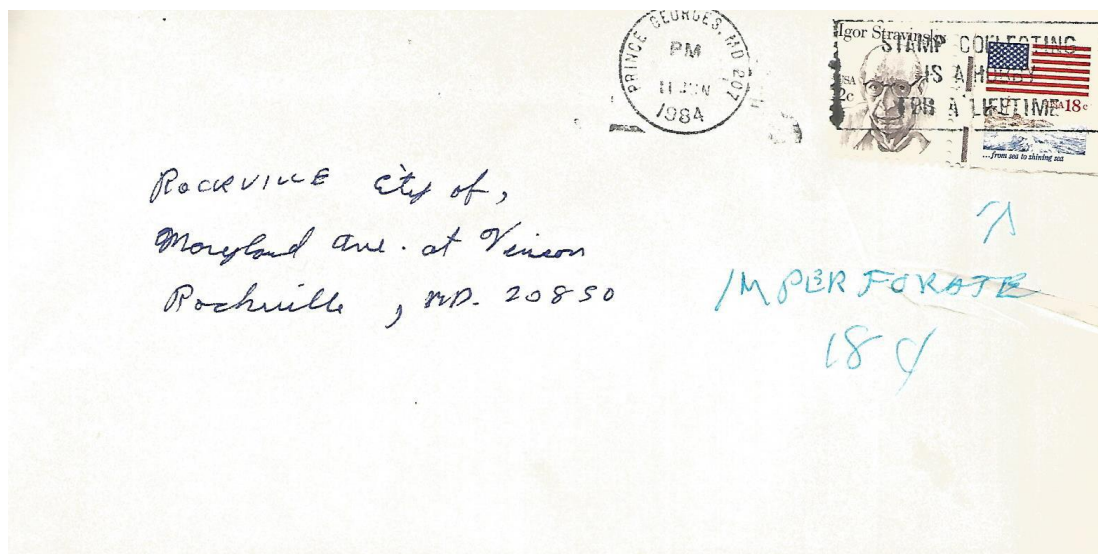 PRINCE GEORGES, MD 207
PM
11 JUN
1984
Igor Stravinsky
USA
2c
STAMP COLLECTING
IS A HOBBY
FOR A LIFETIME
USA 18c
...from sea to shining sea
ROCKVILLE City of,
Maryland Ave. at Vinson
Rockville, MD. 20850
IMPERFORATE
18¢